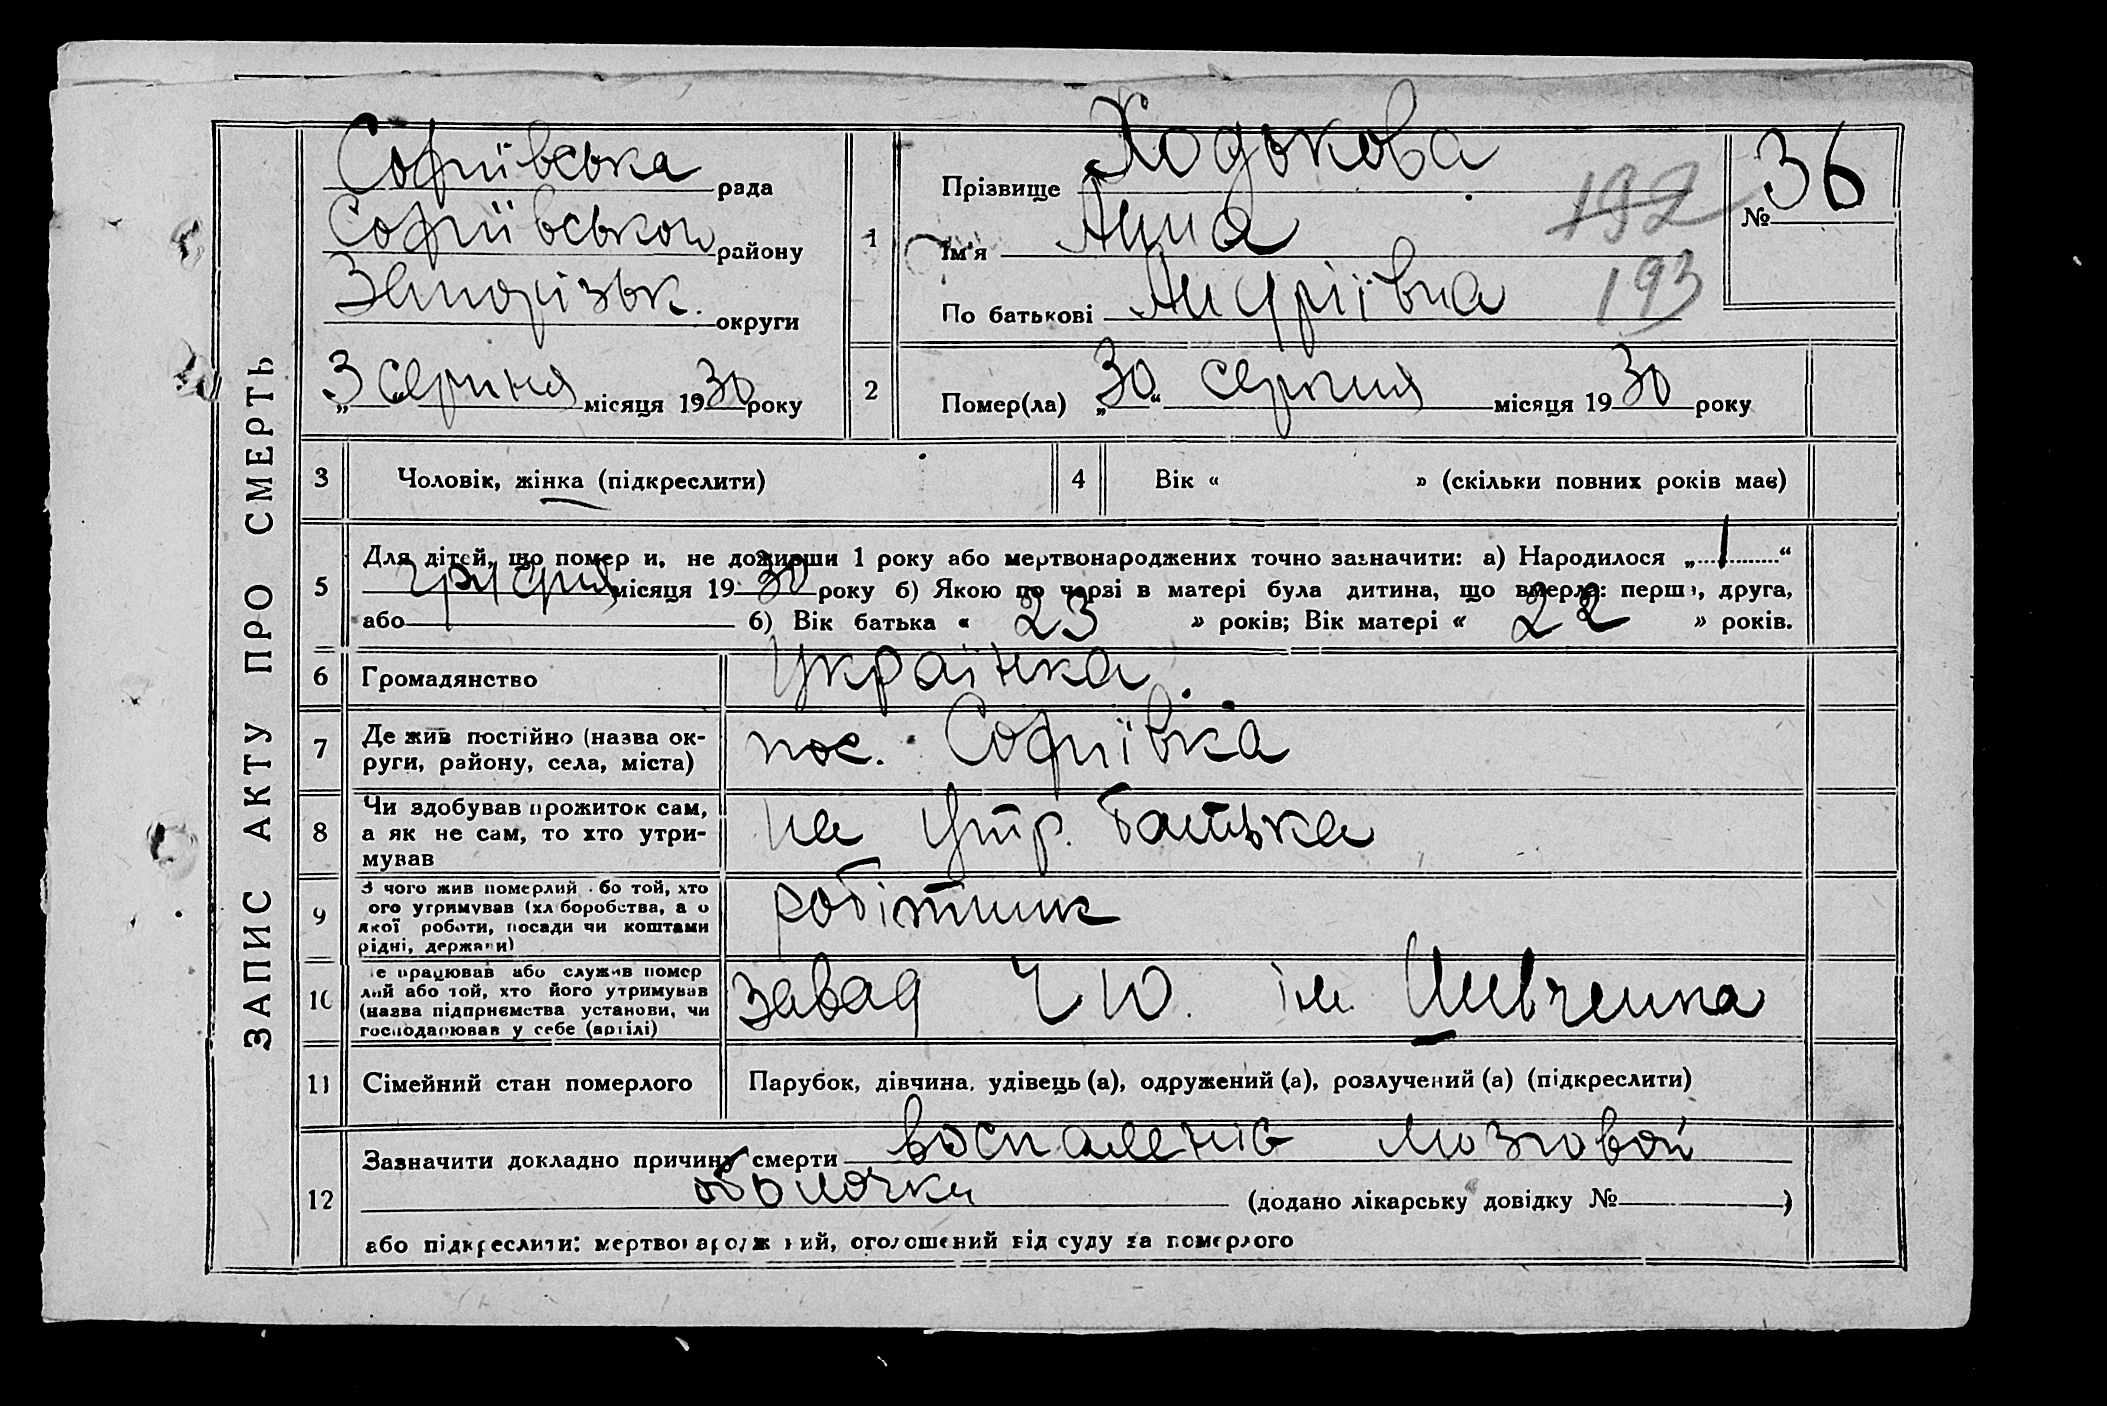 ЗАПИС АКТУ ПРО СМЕРТЬ
Софиївська рада
Софиївського району
Запорізьк. округи
„3“ серпня місяця 1930 року
1
Прізвище Ходькова
Ім'я Анна
По батькові Андріївна
192
193
№ 36
2
Помер(ла) „30“ серпня місяця 1930 року
3 Чоловік, жінка (підкреслити)
4 Вік « » (скільки повних років має)
5
Для дітей, що помер и, не доживши 1 року або мертвонароджених точно зазначити: а) Народилося „1“
місяця 1930 року б) Якою по черзі в матері була дитина, що вмерла: перша, друга,
або б) Вік батька « 23 » років; Вік матері « 22 » років.
6 Громадянство Українка.
7 Де жив постійно (назва ок-
руги, району, села, міста)
пос. Софиївка
8 Чи здобував прожиток сам,
а як не сам, то хто утри-
мував
на утр. батька
9 З чого жив померлий бо той, хто
ого утримував (хл боробства, а о
якої роботи, посади чи коштами
рідні, держави)
робітник
10 е працював або служив помер
лий або той, хто його утримував
(назва підприємства установи, чи
господарював у себе (артілі)
завод Ч Ю. ім. Шевченка
11 Сімейний стан померлого Парубок, дівчина, удівець (а), одружений (а), розлучений (а) (підкреслити)
12
Зазначити докладно причину смерти воспаленіє мозговой
оболочки (додано лікарську довідку № )
або підкреслити: мертвонароджений, оголошений від суду за померлого